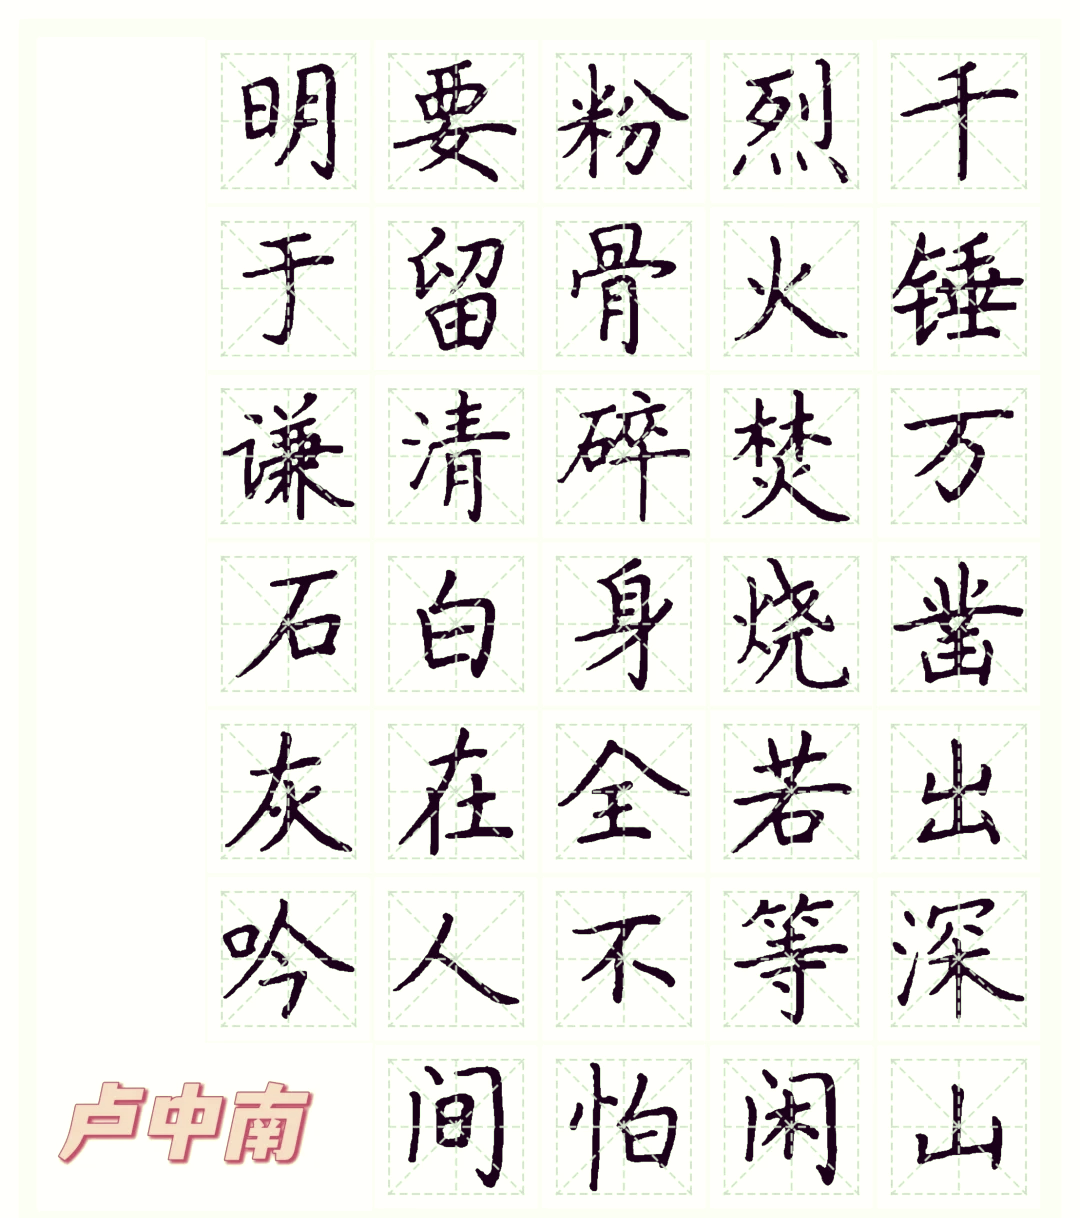 千锤万凿出深山
烈火焚烧若等闲
粉骨碎身全不怕
要留清白在人间
明于谦石灰吟
卢中南